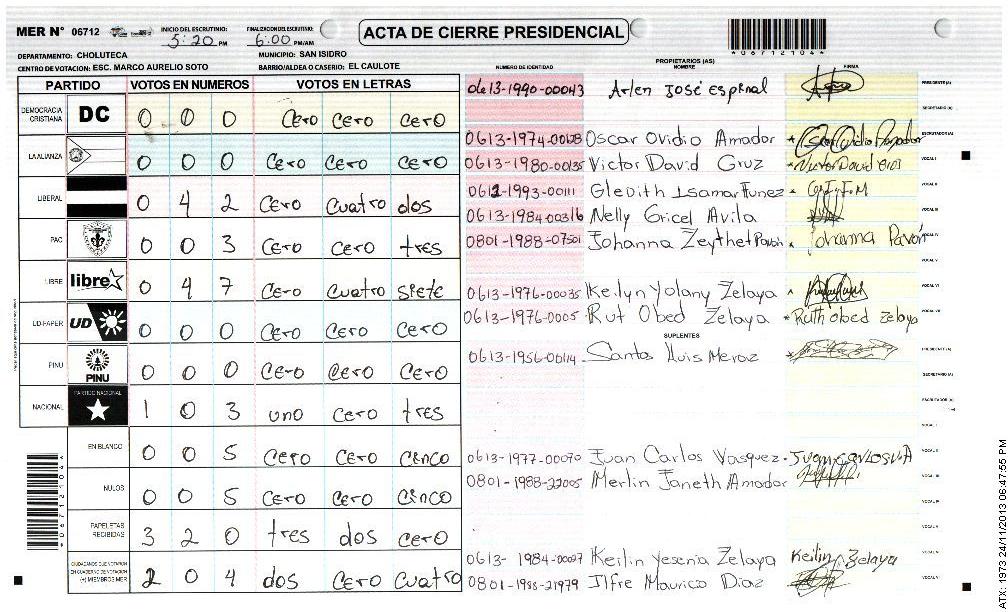 MER N° 06712 INICIO DEL ESCRUTINIO: 5:20 PM FINALIZACION DEL ESCRUTINIO: 6:00 PM/AM ACTA DE CIERRE PRESIDENCIAL *06712104*
DEPARTAMENTO: CHOLUTECA MUNICIPIO: SAN ISIDRO
CENTRO DE VOTACION: ESC. MARCO AURELIO SOTO BARRIO/ALDEA O CASERIO: EL CAULOTE
PARTIDO VOTOS EN NUMEROS VOTOS EN LETRAS
DEMOCRACIA CRISTIANA DC 0 0 0 Cero Cero Cero
LA ALIANZA 0 0 0 Cero Cero Cero
LIBERAL 0 4 2 Cero Cuatro dos
PAC 0 0 3 Cero Cero tres
LIBRE libre 0 4 7 Cero Cuatro siete
UD-FAPER UD 0 0 0 Cero Cero Cero
PINU PINU 0 0 0 Cero Cero Cero
NACIONAL PARTIDO NACIONAL 1 0 3 uno Cero tres
EN BLANCO 0 0 5 Cero Cero Cinco
NULOS 0 0 5 Cero Cero Cinco
PAPELETAS RECIBIDAS 3 2 0 tres dos Cero
CIUDADANOS QUE VOTARON EN CUADERNO DE VOTACION (+) MIEMBROS MER 2 0 4 dos Cero Cuatro
*06712104*
PROPIETARIOS (AS)
NUMERO DE IDENTIDAD NOMBRE FIRMA
0613-1990-00043 Arlen José Espinal PRESIDENTE (A)
SECRETARIO (A)
0613-1974-00068 Oscar Ovidio Amador Oscar Ovidio Amador ESCRUTADOR (A)
0613-1980-00135 Victor David Cruz Victor David VOCAL I
0612-1993-00111 Gledith Isamar Funez VOCAL II
0613-1984-00316 Nelly Gricel Avila VOCAL III
0801-1988-07501 Johanna Zeythet Pavon Johanna Pavón VOCAL IV
VOCAL V
0613-1976-00035 Keilyn Yolany Zelaya VOCAL VI
0613-1976-0005 Rut Obed Zelaya Ruth Obed Zelaya VOCAL VII
SUPLENTES
0613-1956-00114 Santos Luis Meraz PRESIDENTE (A)
SECRETARIO (A)
ESCRUTADOR (A)
VOCAL I
0613-1977-00070 Juan Carlos Vasquez Juan Carlos VOCAL II
0801-1988-22005 Merlin Janeth Amador VOCAL III
VOCAL IV
VOCAL V
0613-1984-0007 Keilin Yesenia Zelaya Keilin Zelaya
0801-1988-21979 Ilfre Maurico Diaz
ATX: 1973 24/11/2013 06:47:55 PM